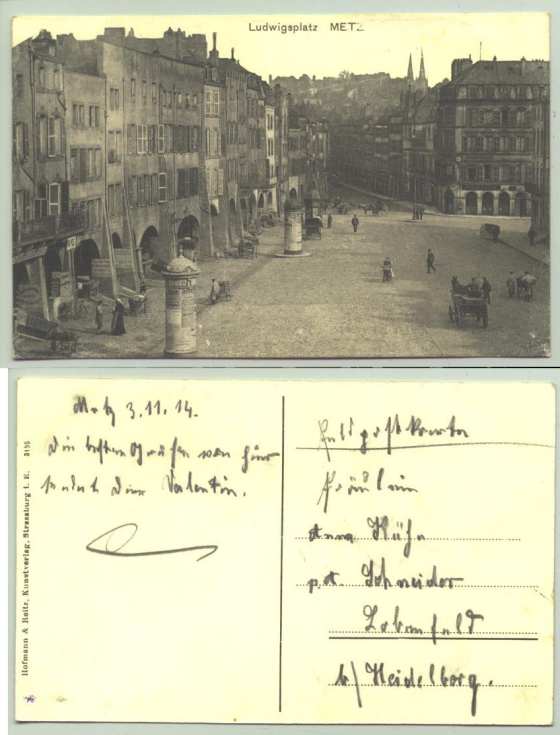 Ludwigsplatz METZ
Metz 3.11.14.
Die besten Grüße von hier
sendet Dir Valentin.
Hofmann & Reitz, Kunstverlag, Strassburg i. E.
Feldpostkarte
Fräulein
Anna Kühn
p.A. Schneider
Lobenfeld
b/ Heidelberg.